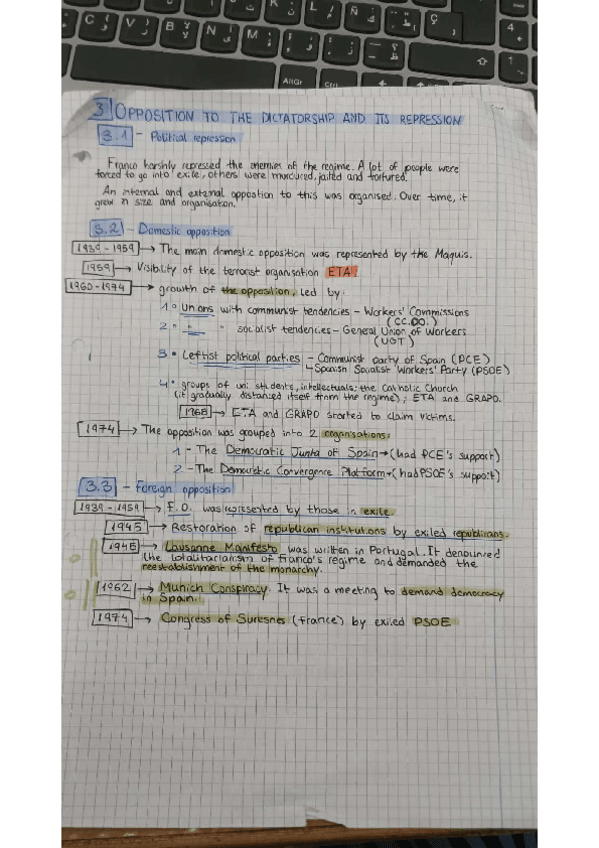 3 OPPOSITION TO THE DICTATORSHIP AND ITS REPRESSION
3.1 - Political repression
Franco harshly repressed the enemies of the regime. A lot of people were
forced to go into exile, others were murdured, jailed and tortured.
An internal and external oppostion to this was organised. Over time, it
grew in size and organisation.
3.2 - Domestic opposition
1939-1959 → The main domestic opposition was represented by the Maquis.
1959 → Visibility of the terrorist organisation ETA.
1960-1974 → growth of the opposition, led by:
1º Unions with communist tendencies - Workers' Commissions
(CC.OO.)
2º " " socialist tendencies - General Union of Workers
(UGT)
3º Leftist political parties - Communist party of Spain (PCE)
↳ Spanish Socialist Workers' Party (PSOE)
4º groups of uni students, intellectuals; the Catholic Church
(it gradually distanced itself from the regime); ETA and GRAPO.
1968 → ETA and GRAPO started to claim victims.
1974 → The opposition was grouped into 2 organisations:
1 - The Democratic Junta of Spain → (had PCE's support)
2 - The Democratic Convergence Platform → (had PSOE's support)
3.3 - Foreign opposition
1939-1959 → F.O. was represented by those in exile.
1945 → Restoration of republican institutions by exiled republicans.
1945 → Lausanne Manifesto was written in Portugal. It denounced
the totalitarianism of Franco's regime and demanded the
reestablishment of the monarchy.
1962 → Munich Conspiracy. It was a meeting to demand democracy
in Spain.
1974 → Congress of Suresnes (France) by exiled PSOE